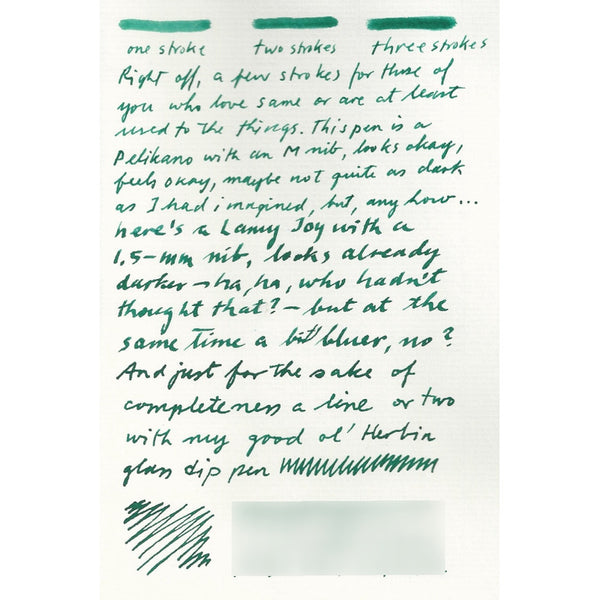 one stroke two strokes three strokes
Right off, a few strokes for those of
you who love same or are at least
used to the things. This pen is a
Pelikano with an M nib, looks okay,
feels okay, maybe not quite as dark
as I had imagined, but, any how...
here's a Lamy Joy with a
1.5-mm nib, looks already
darker - ha, ha, who hadn't
thought that? - but at the
same time a bit bluer, no?
And just for the sake of
completeness a line or two
with my good ol' Herbin
glass dip pen